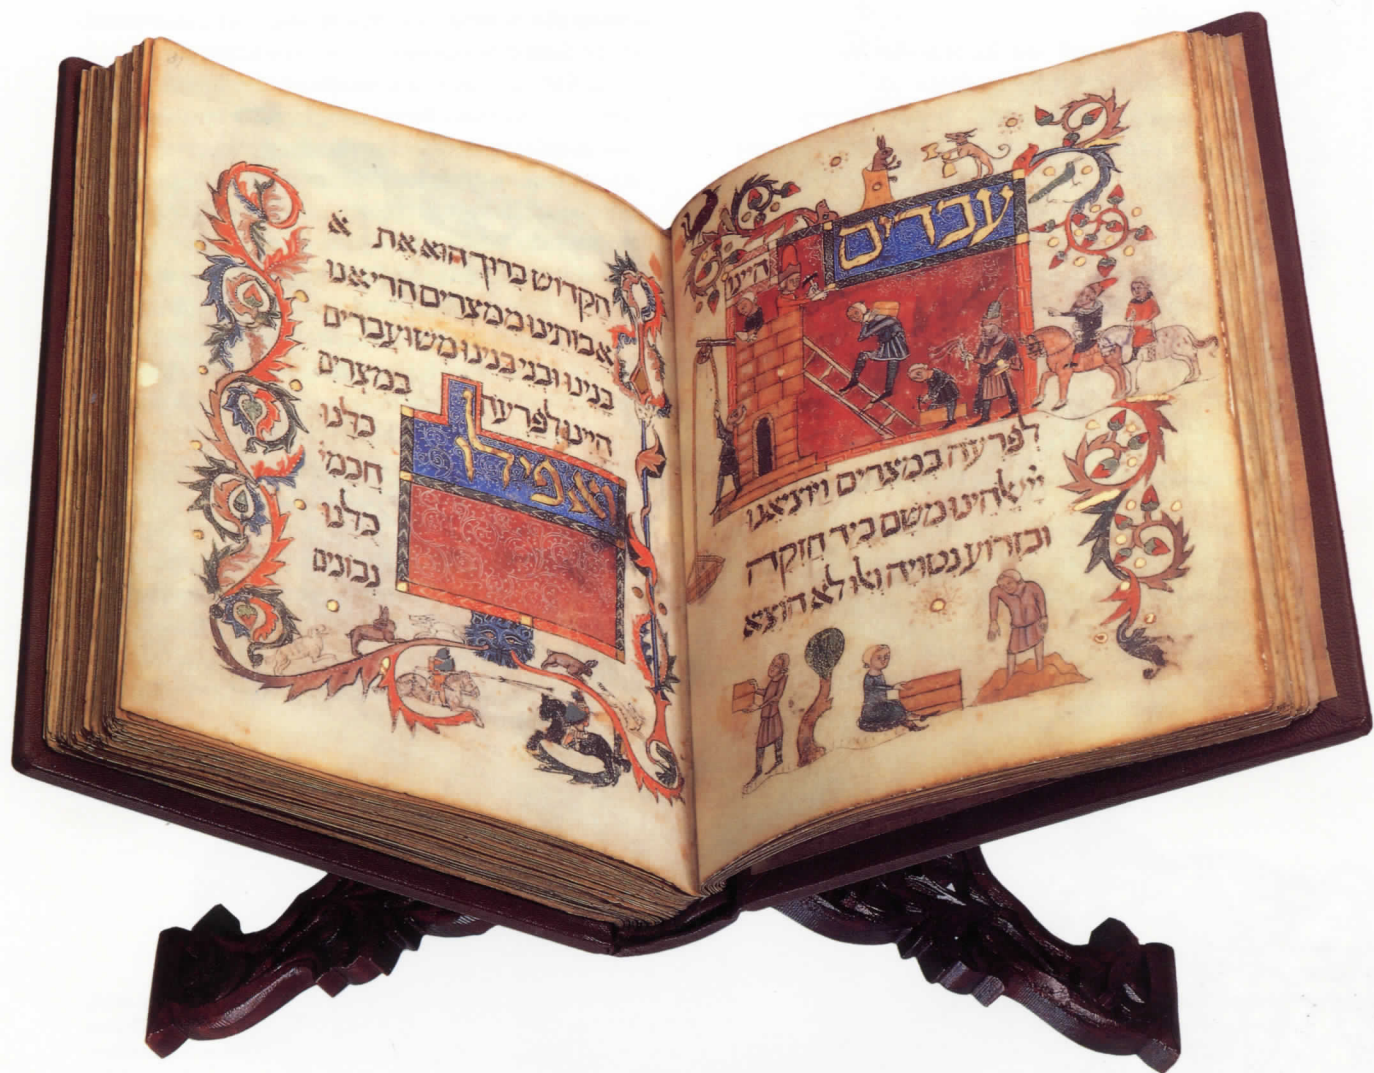 עבדים
היינו
לפרעה במצרים ויוצאנו
ייי אלהינו משם ביד חזקה
ובזרוע נטויה ואלו לא הוצא
הקדוש ברוך הוא את א
אבותינו ממצרים הרי אנו
בנינו ובני בנינו משועבדים
היינו לפרעה במצרים
ואפילו כלנו
חכמי
כלנו
נבונים